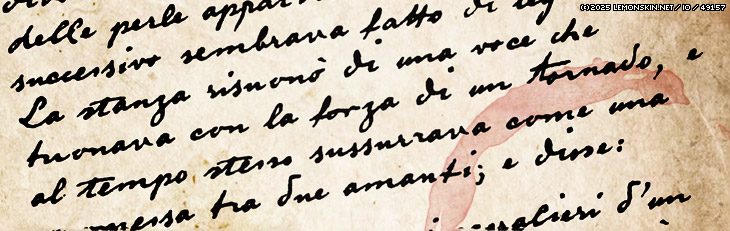 (C)2025 LEMONSKIN.NET / IO / 49157
delle perle
successivo sembrava fatto di
La stanza risuonò di una voce che
tuonava con la forza di un tornado, e
al tempo stesso sussurrava come una
tra due amanti; e disse:
d'un